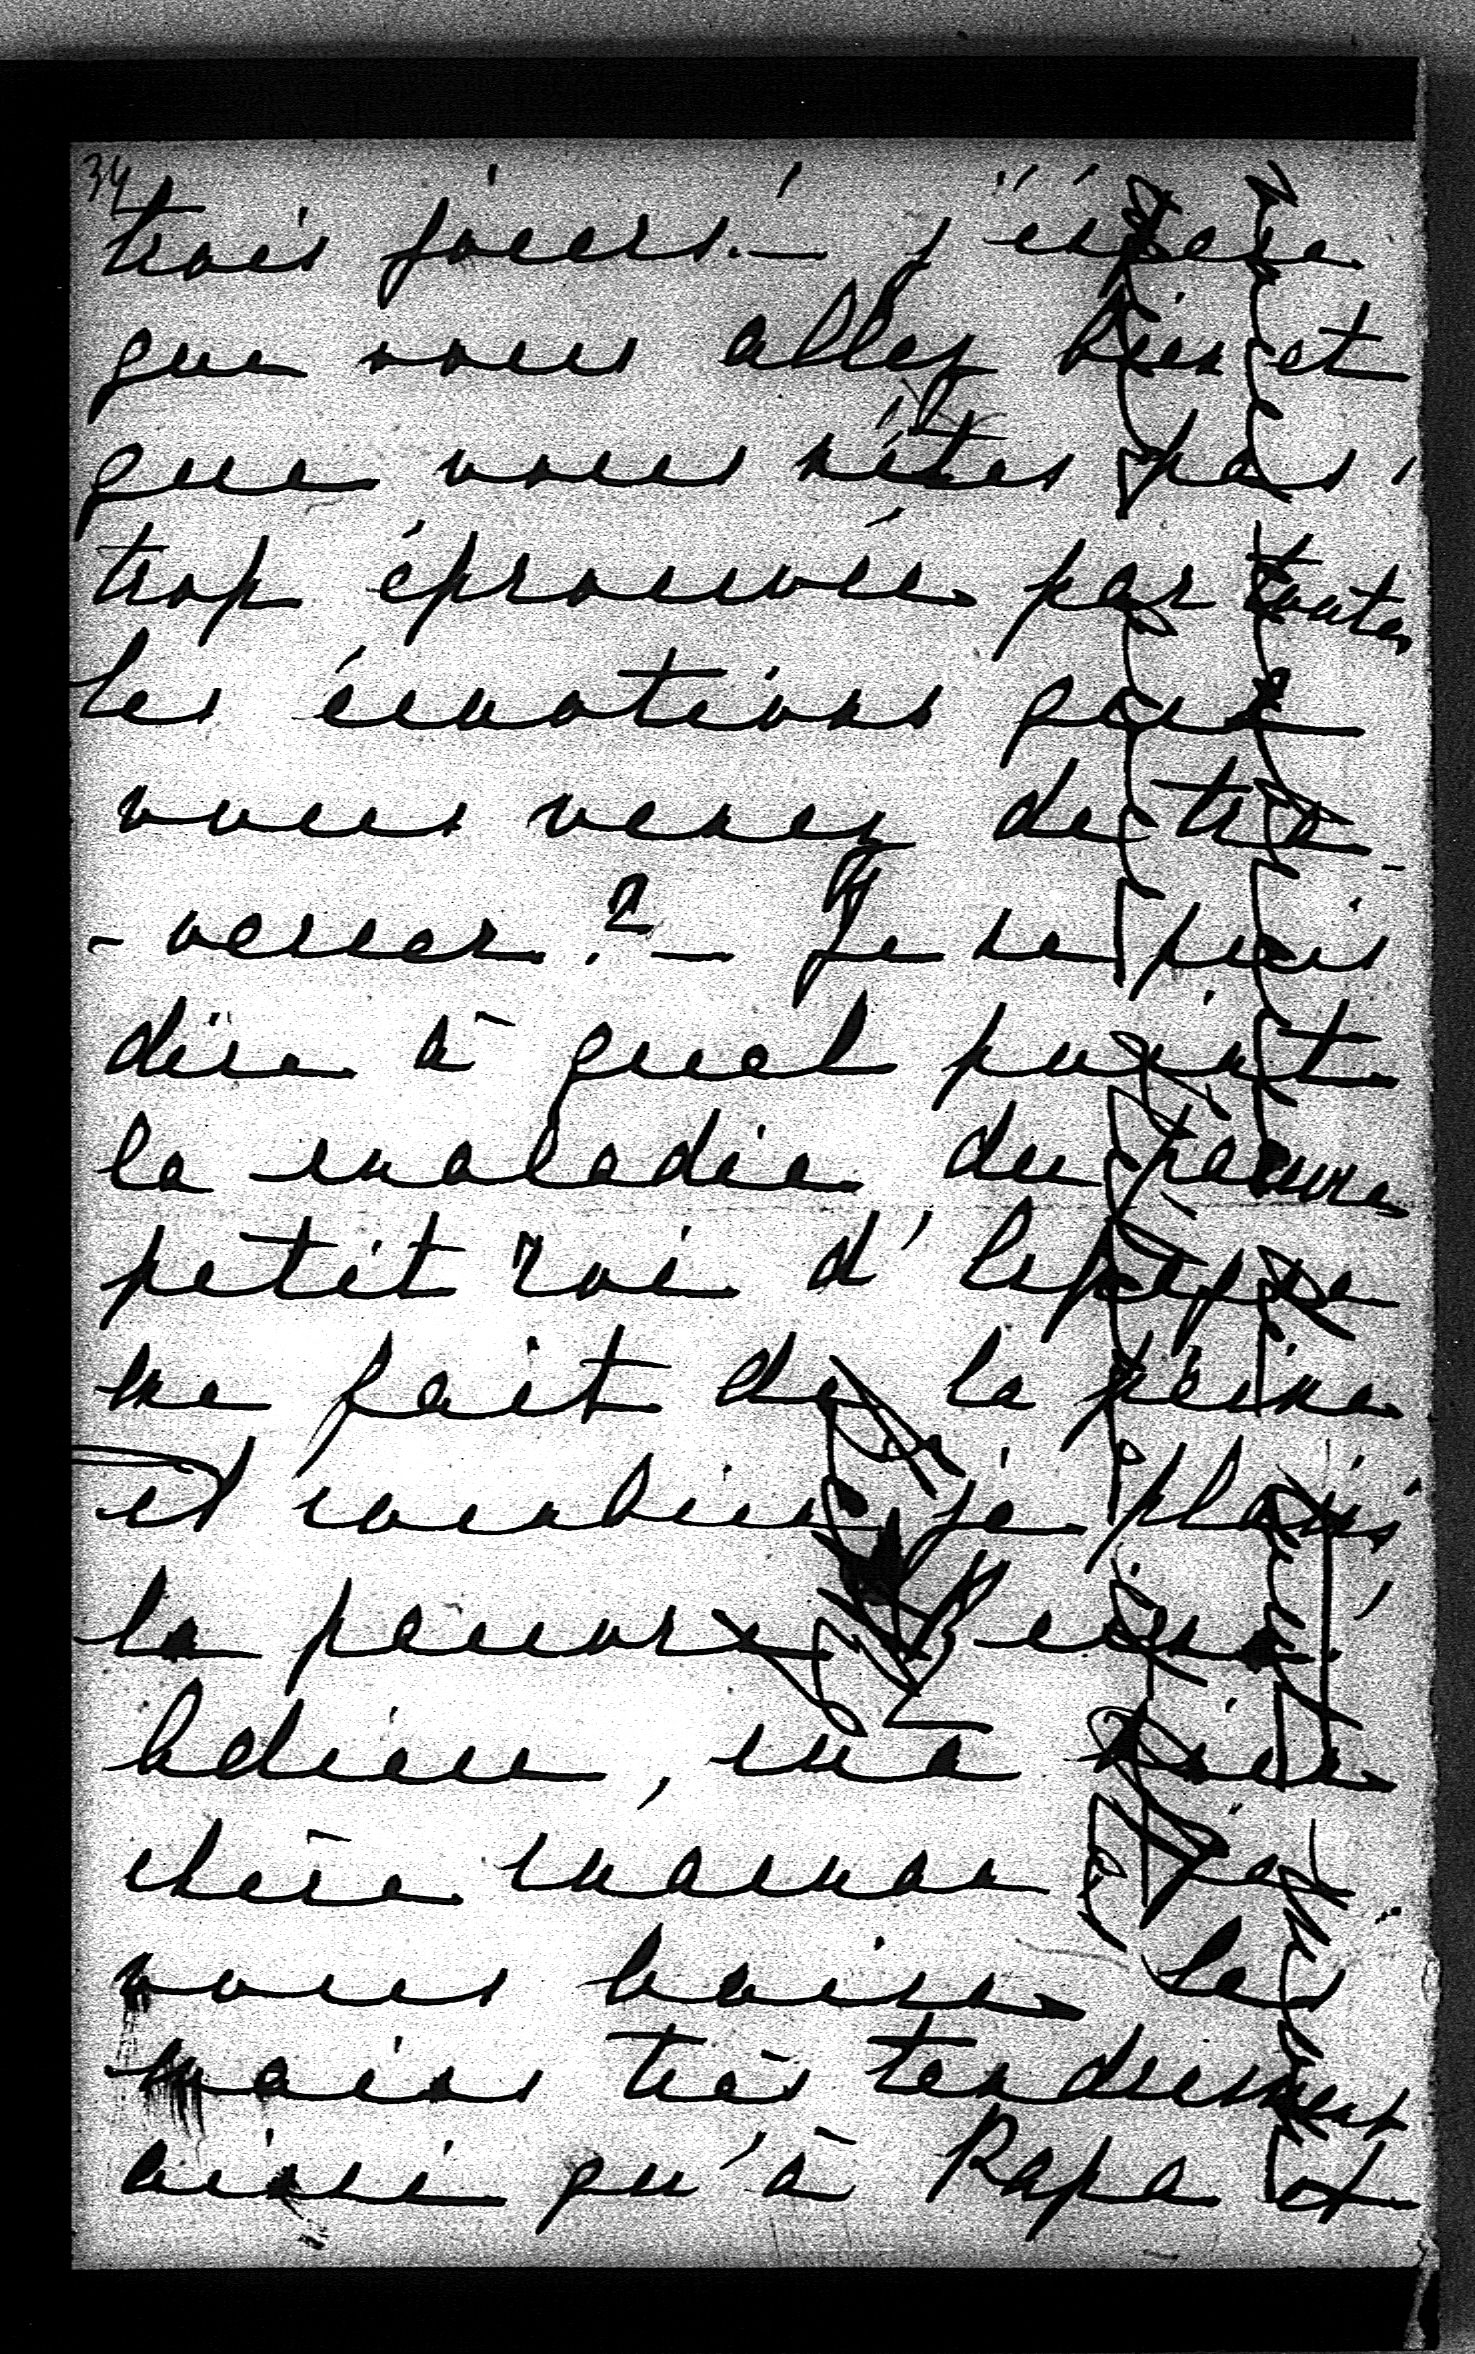 34
trois jours. — j'éspère
que vous allez bien et
que vous n'êtes pas
trop éprouvée par toutes
les émotions que
vous venez de tra-
-verser ? — Je ne puis
dire à quel point
la maladie du pauvre
petit roi d'Espagne
me fait de la peine
et combien je plains
la pauvre reine.
Adieu, ma bien
chère maman je
vous baise les
mains très tendrement
ainsi qu'à Papa et